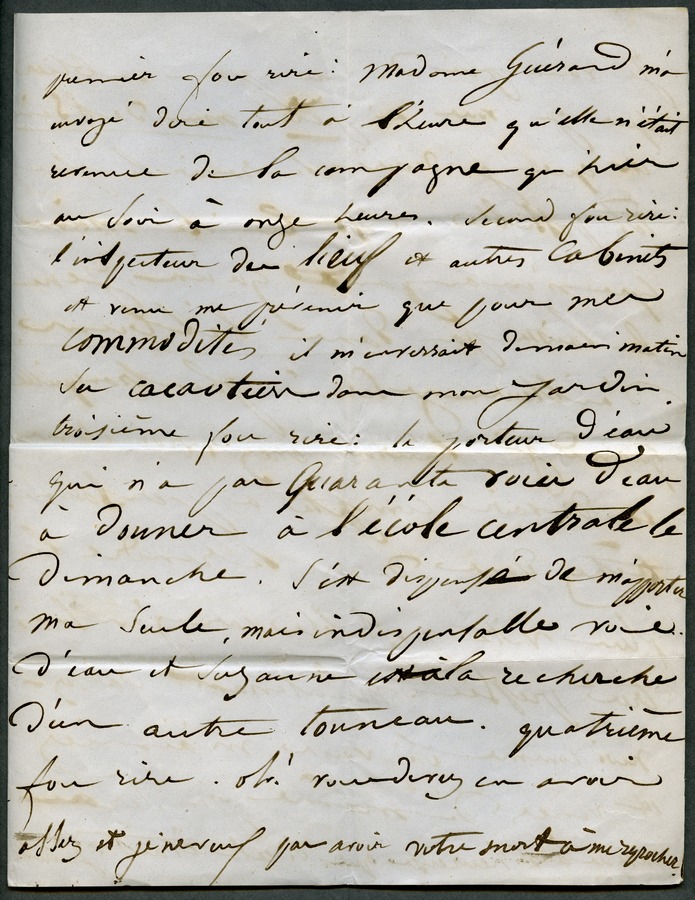 premier fou rire: Madame Guérard m'a
envoyé dire tout à l'heure qu'elle n'était
revenue de la campagne qu'hier
au soir à onze heures. Second fou rire:
l'inspecteur des lieux et autres Cabinets
et venu me prévenir que pour mes
commodités il m'enverrait demain matin
dans mon jardin
troisième fou rire: le porteur d'eau
qui n'a pas Quarante voies d'eau
à donner à l'école centrale le
Dimanche. S'est dispensé de m'apporter
ma seule, mais indispensable voie
d'eau et Suzanne est à la recherche
d'un autre tonneau. quatrième
fou rire. oh! vous devez en avoir
assez et je ne veux pas avoir votre mort à me reprocher.